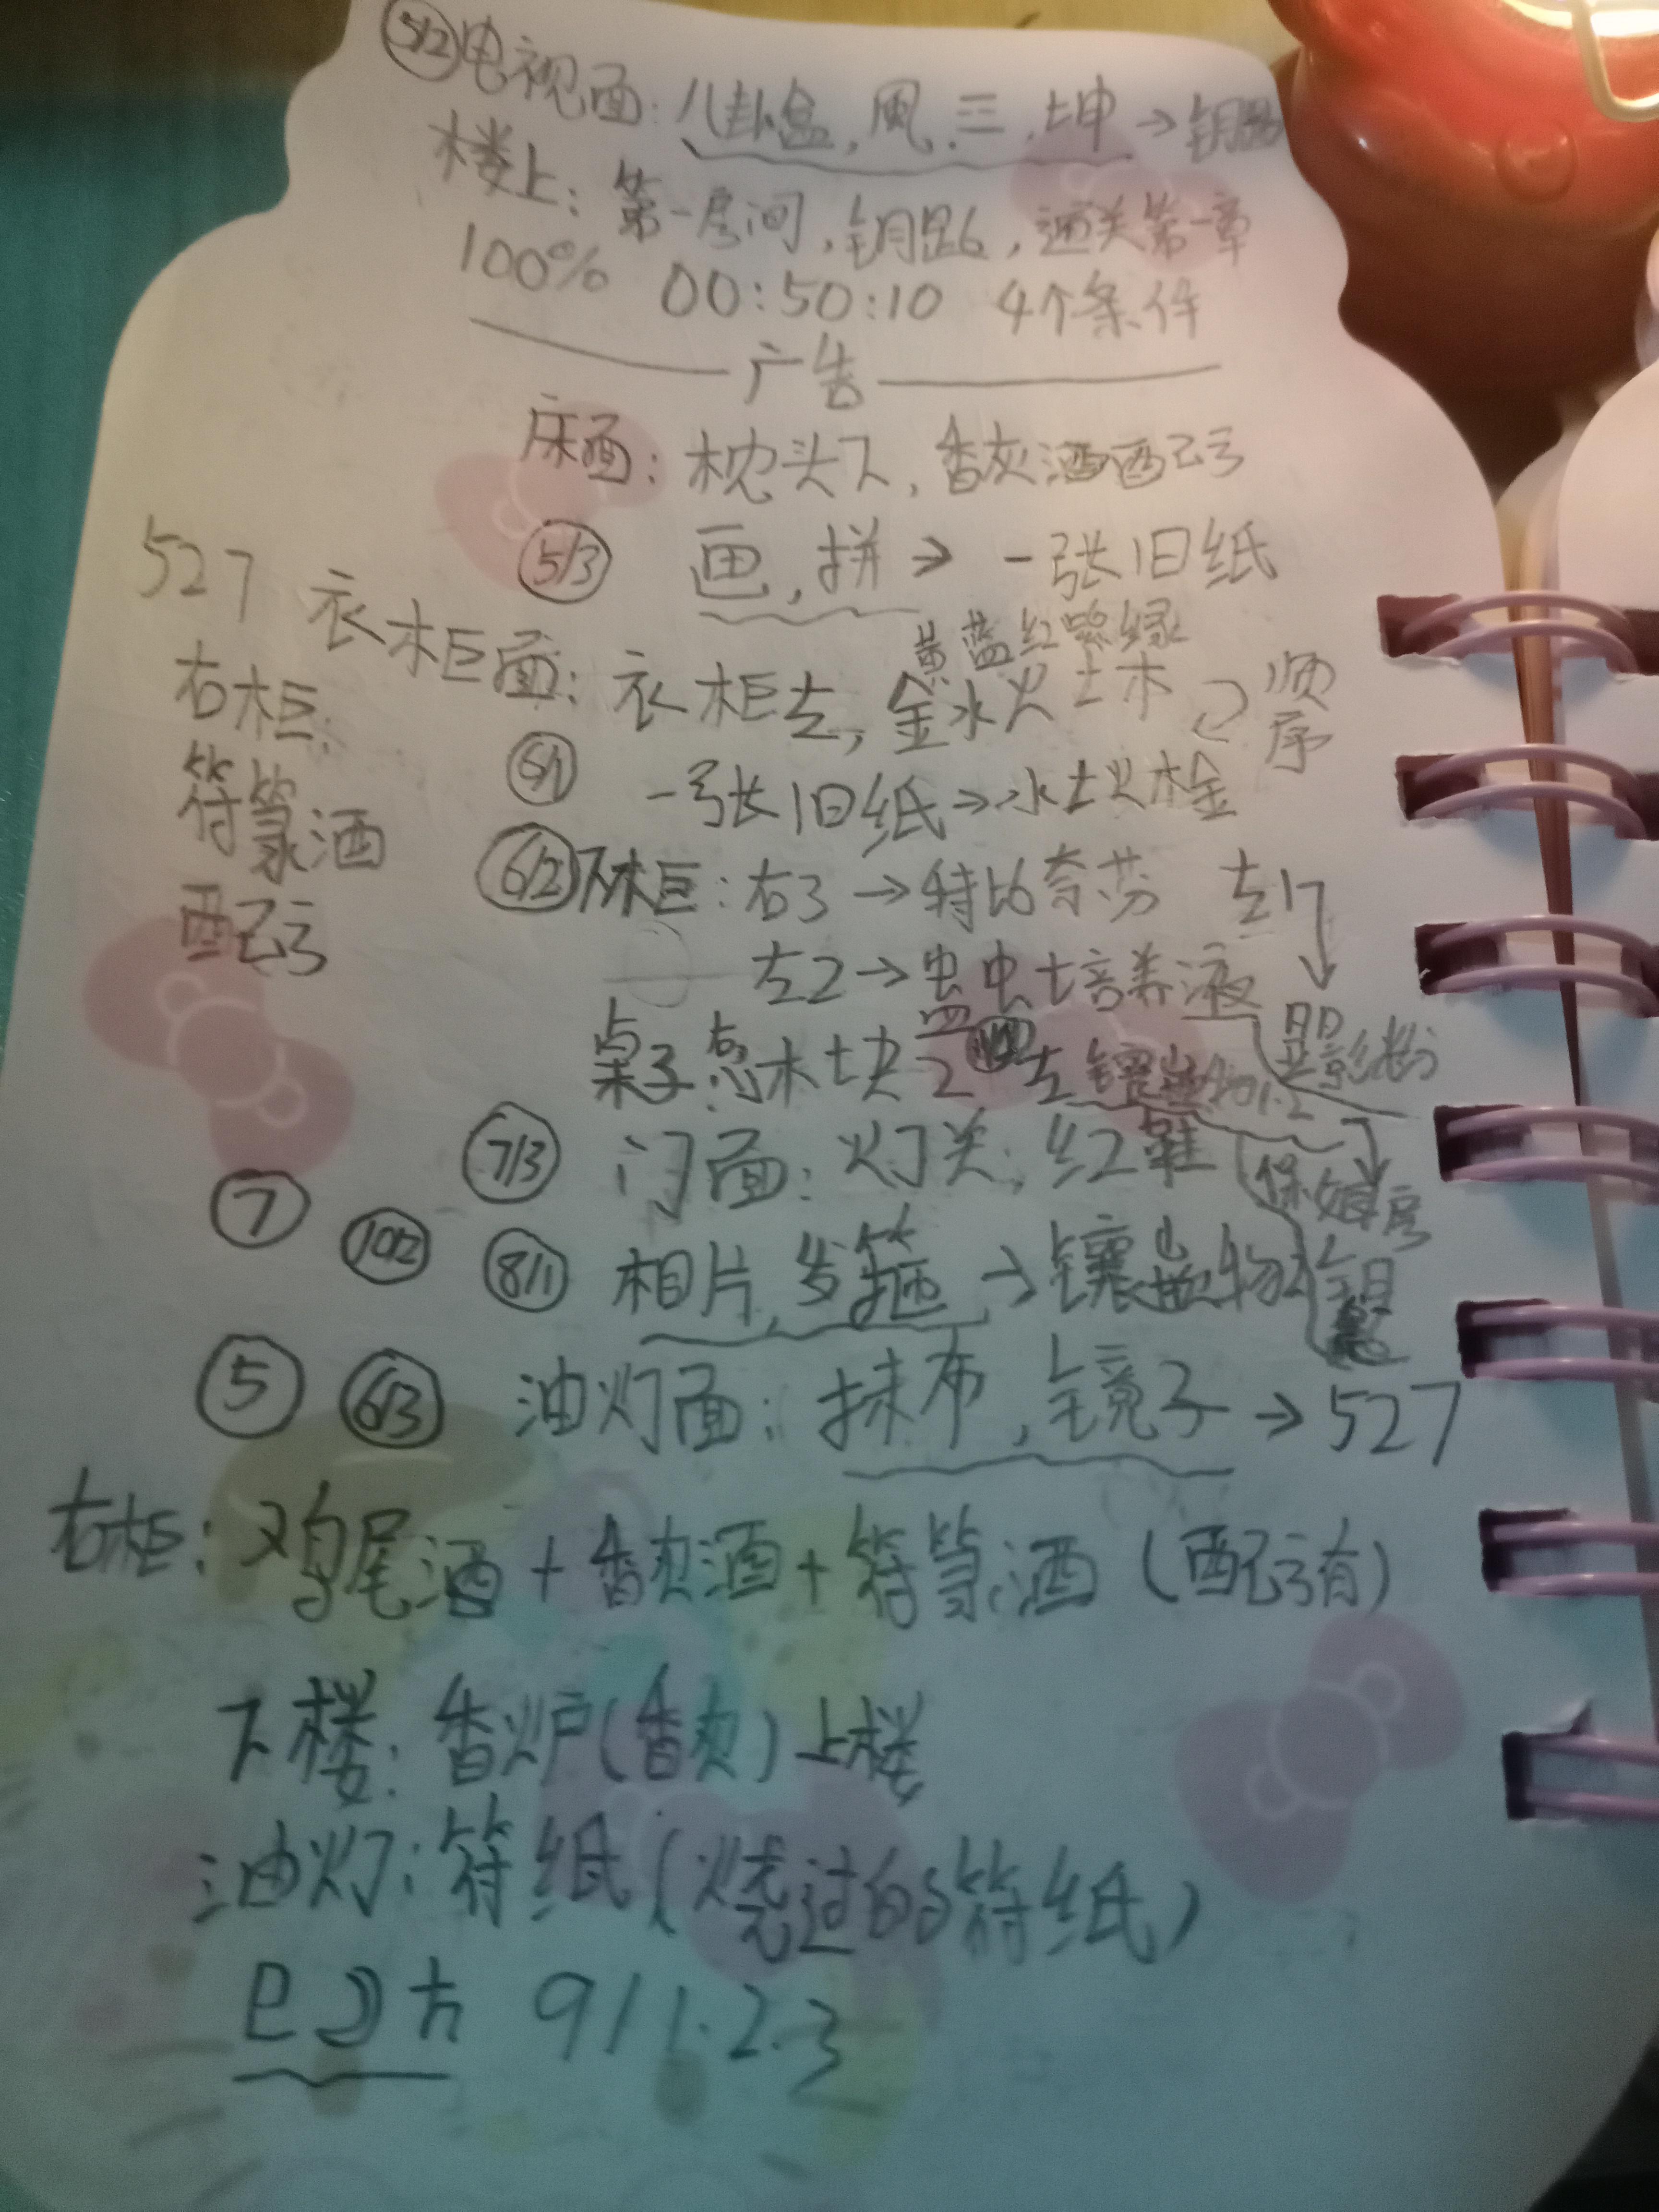 5/2 电视面：八卦盒，風，三，坤→钥匙
楼上：第一房间，钥匙，通关第一章
100% 00:50:10 4个条件
广告
床面：枕头下，香灰酒配方
5/3 画，拼→一张旧纸
527
黄蓝红紫绿
衣柜面：衣柜左，金水火土木
顺序
右柜：
符篆酒
配方
6/1 一张旧纸→水土火木金
6/2 下柜：右3→特比奈芬 左1
左2→蛊虫培养液
显影粉
桌子 木块 2 左镶嵌物1.2
7/3 门面：灯关，红鞋
保姆房
钥
7 10/2 8/1 相片，发箍→镶嵌物
5 6/3 油灯面：抹布，镜子→527
右柜：鸡尾酒+香灰酒+符篆酒（配方有）
下楼：香炉（香灰）上楼
油灯：符纸（烧过的符纸）
911.2.3